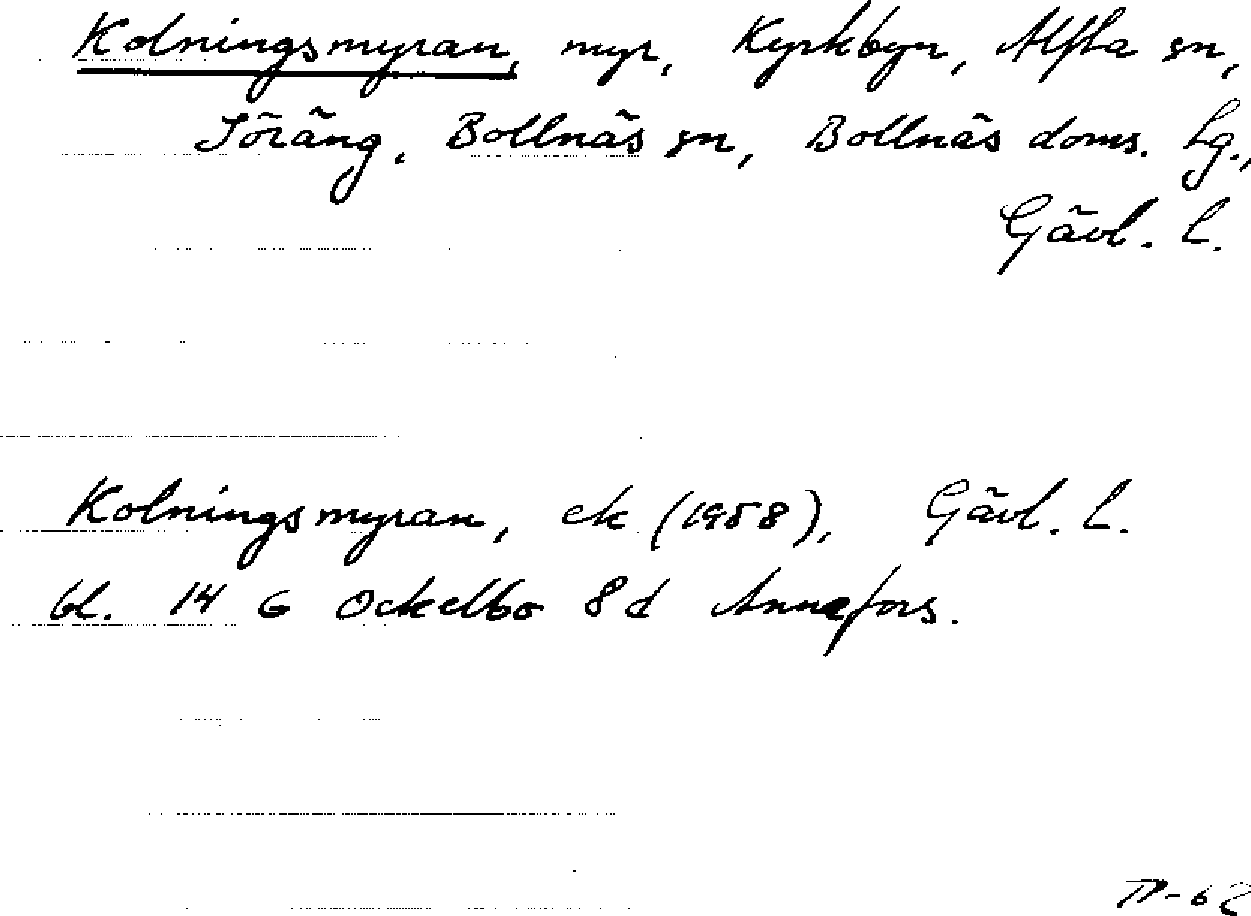 Kolningsmyran, myr, Kyrkbyn, Alfta sn,
Söräng, Bollnäs sn, Bollnäs doms. hg.,
Gävl. l.
Kolningsmyran, ek (1958), Gävl. l.
bl. 14 G Ockelbo 8 d Annefors.